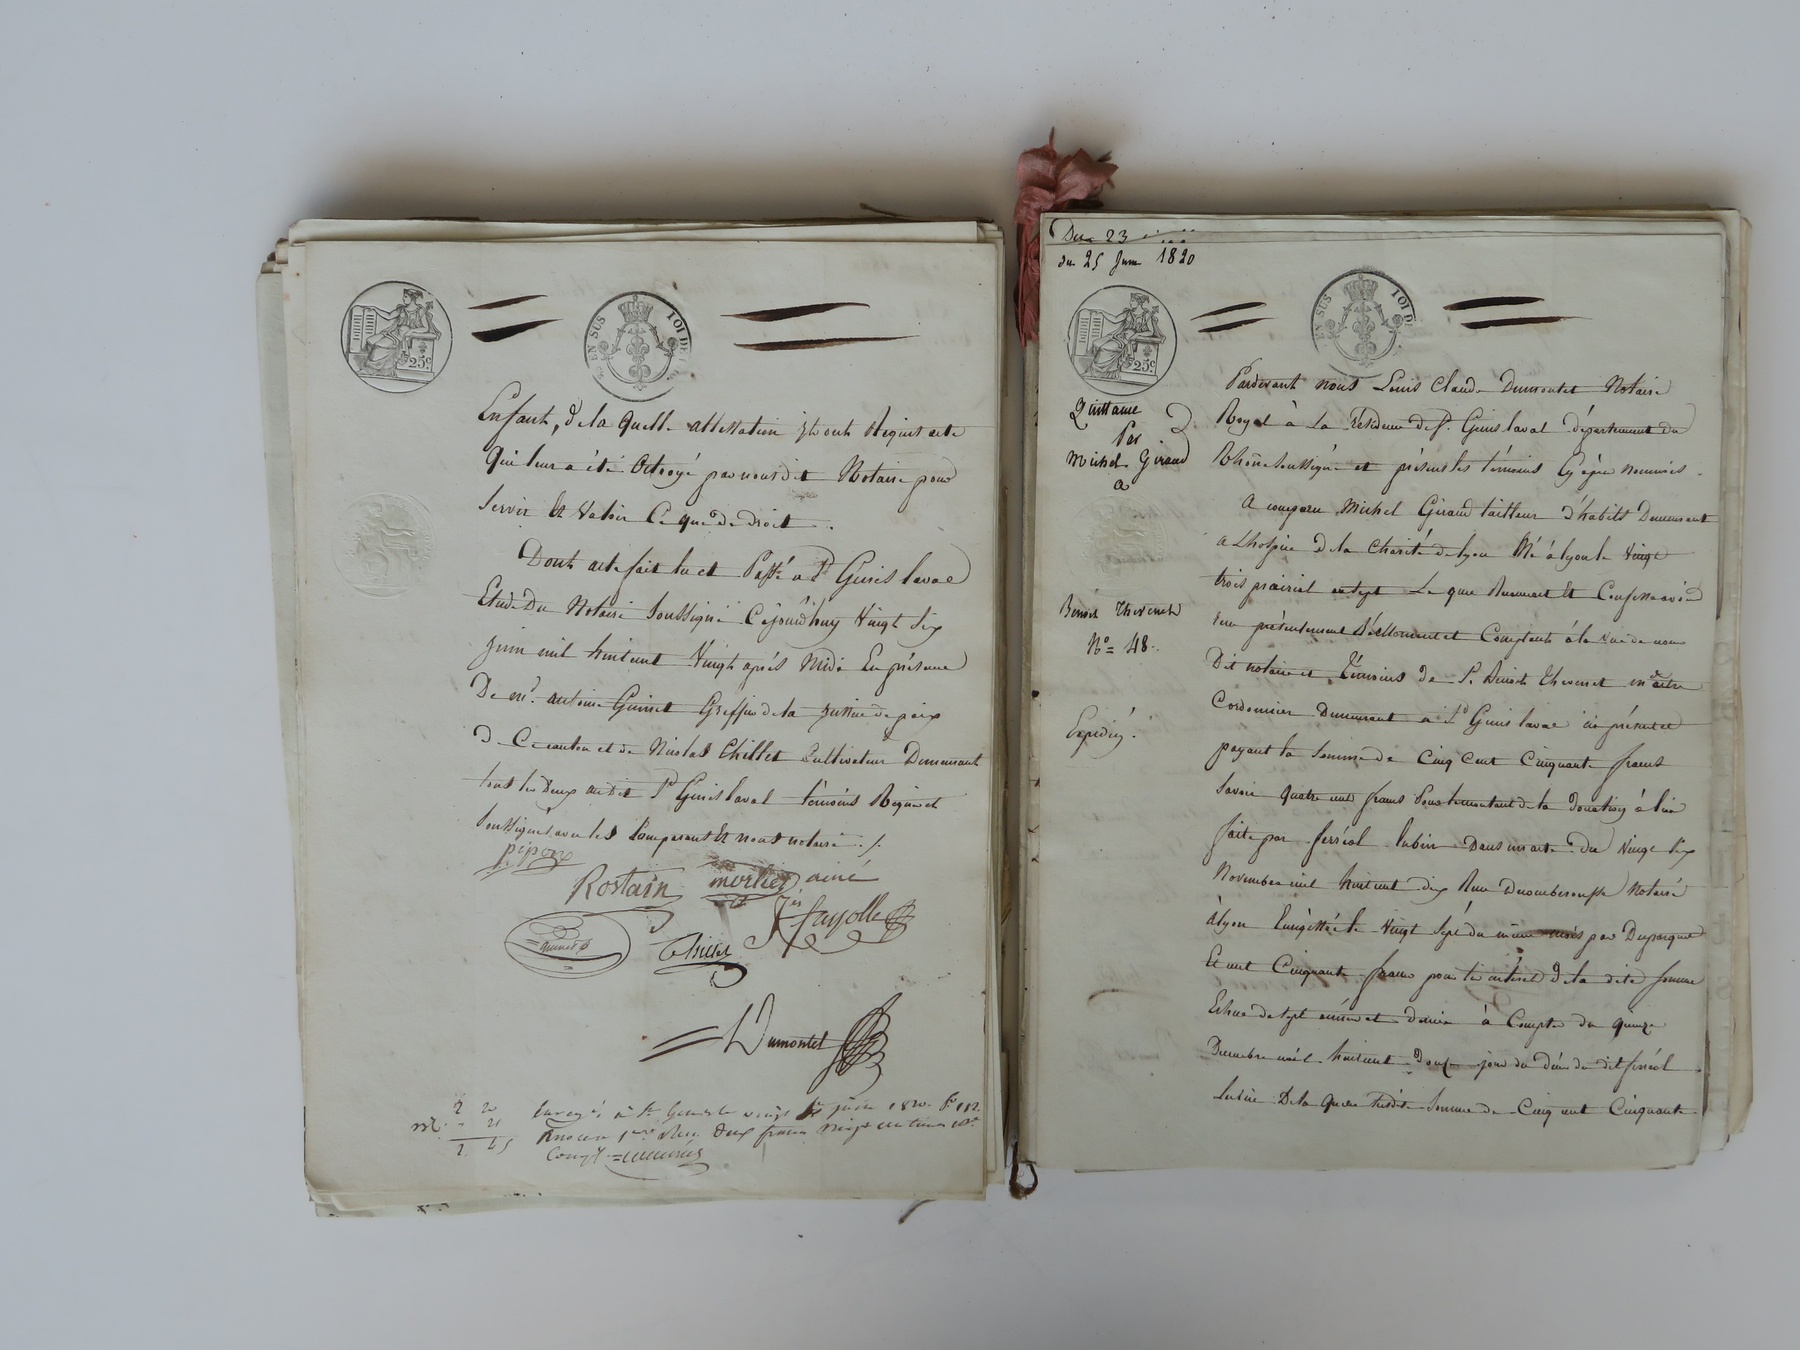 25c
EN SUS
TOI DE
Enfant, & de la quelle attestation ils ont Requis acte
Qui leur a été Octroyé par nous dit Notaire pour
Servir Et Valoir Ce que de droit.
Dont acte fait lu et Passé a St Genis laval
Etude Du Notaire Soussigné Cejourd'huy Vingt Six
juin mil huit cent Vingt après Midi En présence
De mr. antoine Guinet Greffier de la justice de paix
de Ce canton et de Nicolas Thillet Cultivateur Demeurant
tous les deux au dit St Genis laval témoins Requis et
Soussignés avec les Comparants Et nous notaire ./.
pipon
Rostain morlier ainé
fayolle
guinet
Thillet
Dumontet
2 20
- 21
2 45
Enregé à St Genis le vingt juin 1820. fo 112.
Reçu deux francs vingt centimes
Du 23
du 25 Juin 1820
25c
EN SUS
TOI D
Quittance
Par
Michel Giraud
a
Benoit Thevenet
No = 48.
Expédié.
Pardevant nous Louis Claude Dumontet Notaire
Royal à La Résidence de St. Genis laval département du
Rhône Soussigné et présents les témoins Cy après nommés.
A comparu Michel Giraud tailleur d'habits Demeurant
a L'hospice de la Charité de lyon Né à lyon le Vingt
trois prairial an sept Le quel Reconnait Et Confesse avoir
reçu présentement Réellement et Comptant à la vue de nous
Dit notaire et Témoins de Sr. Benoit Thevenet maitre
Cordonnier Demeurant a St Genis laval ici présent et
payant la Somme de Cinq Cent Cinquante francs
Savoir quatre cent francs pour le montant de la donation à lui
faite par ferréol lubin Dans un acte du Vingt Six
Novembre mil huit cent dix Reçu notaire
à lyon Enregistré le Vingt Sept du même mois par
Et cent Cinquante francs pour les intérêt de la dite somme
Echue de sept années et demie à Compter du quinze
Décembre mil huit cent douze jour du décès du dit ferréol
lubin De la quelle susdite Somme de Cinq cent Cinquante